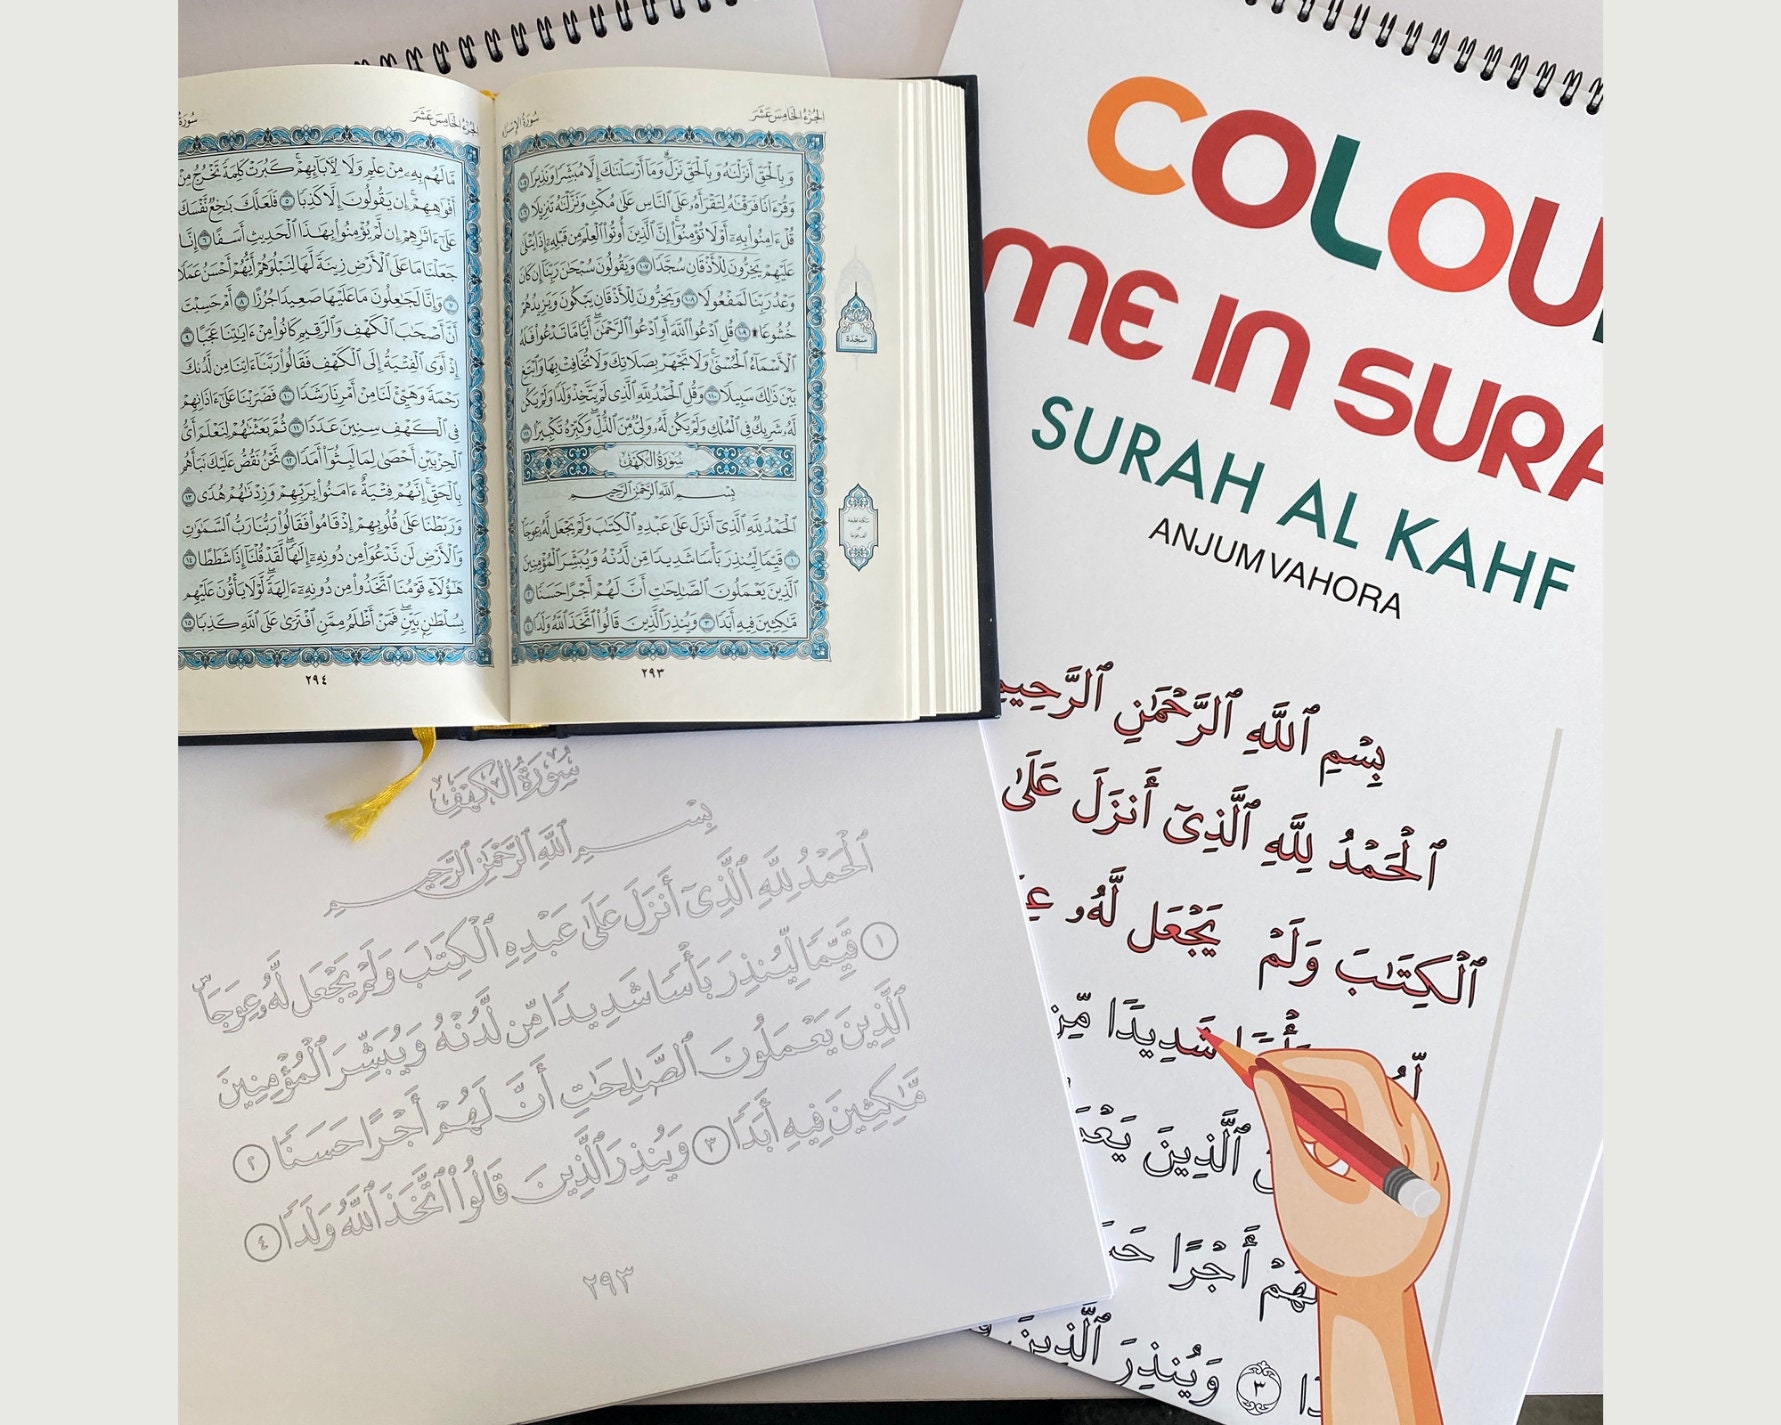 الجزء الخامس عشر
سورة الإسراء
وَبِالْحَقِّ أَنزَلْنَاهُ وَبِالْحَقِّ نَزَلَ ۗ وَمَا أَرْسَلْنَاكَ إِلَّا مُبَشِّرًا وَنَذِيرًا ١٠٥
وَقُرْءَانًا فَرَقْنَاهُ لِتَقْرَأَهُ عَلَى النَّاسِ عَلَىٰ مُكْثٍ وَنَزَّلْنَاهُ تَنزِيلًا ١٠٦
قُلْ ءَامِنُوا بِهِ أَوْ لَا تُؤْمِنُوا ۚ إِنَّ الَّذِينَ أُوتُوا الْعِلْمَ مِن قَبْلِهِ إِذَا يُتْلَىٰ
عَلَيْهِمْ يَخِرُّونَ لِلْأَذْقَانِ سُجَّدًا ١٠٧ وَيَقُولُونَ سُبْحَانَ رَبِّنَا إِن كَانَ
وَعْدُ رَبِّنَا لَمَفْعُولًا ١٠٨ وَيَخِرُّونَ لِلْأَذْقَانِ يَبْكُونَ وَيَزِيدُهُمْ
خُشُوعًا ۩ ١٠٩ قُلِ ادْعُوا اللَّهَ أَوِ ادْعُوا الرَّحْمَٰنَ ۖ أَيًّا مَّا تَدْعُوا فَلَهُ
الْأَسْمَاءُ الْحُسْنَىٰ ۚ وَلَا تَجْهَرْ بِصَلَاتِكَ وَلَا تُخَافِتْ بِهَا وَابْتَغِ
بَيْنَ ذَٰلِكَ سَبِيلًا ١١٠ وَقُلِ الْحَمْدُ لِلَّهِ الَّذِي لَمْ يَتَّخِذْ وَلَدًا وَلَمْ يَكُن
لَّهُ شَرِيكٌ فِي الْمُلْكِ وَلَمْ يَكُن لَّهُ وَلِيٌّ مِّنَ الذُّلِّ ۖ وَكَبِّرْهُ تَكْبِيرًا ١١١
سجدة
سورة الكهف
بِسْمِ اللَّهِ الرَّحْمَٰنِ الرَّحِيمِ
الْحَمْدُ لِلَّهِ الَّذِي أَنزَلَ عَلَىٰ عَبْدِهِ الْكِتَابَ وَلَمْ يَجْعَل لَّهُ عِوَجًا
١ قَيِّمًا لِّيُنذِرَ بَأْسًا شَدِيدًا مِّن لَّدُنْهُ وَيُبَشِّرَ الْمُؤْمِنِينَ
الَّذِينَ يَعْمَلُونَ الصَّالِحَاتِ أَنَّ لَهُمْ أَجْرًا حَسَنًا ٢
مَّاكِثِينَ فِيهِ أَبَدًا ٣ وَيُنذِرَ الَّذِينَ قَالُوا اتَّخَذَ اللَّهُ وَلَدًا ٤
٢٩٣
الجزء الخامس عشر
سورة
مَّا لَهُم بِهِ مِنْ عِلْمٍ وَلَا لِآبَائِهِمْ ۚ كَبُرَتْ كَلِمَةً تَخْرُجُ مِنْ
أَفْوَاهِهِمْ ۚ إِن يَقُولُونَ إِلَّا كَذِبًا ٥ فَلَعَلَّكَ بَاخِعٌ نَّفْسَكَ
عَلَىٰ ءَاثَارِهِمْ إِن لَّمْ يُؤْمِنُوا بِهَٰذَا الْحَدِيثِ أَسَفًا ٦ إِنَّا
جَعَلْنَا مَا عَلَى الْأَرْضِ زِينَةً لَّهَا لِنَبْلُوَهُمْ أَيُّهُمْ أَحْسَنُ عَمَلًا
٧ وَإِنَّا لَجَاعِلُونَ مَا عَلَيْهَا صَعِيدًا جُرُزًا ٨ أَمْ حَسِبْتَ
أَنَّ أَصْحَابَ الْكَهْفِ وَالرَّقِيمِ كَانُوا مِنْ ءَايَاتِنَا عَجَبًا ٩
إِذْ أَوَى الْفِتْيَةُ إِلَى الْكَهْفِ فَقَالُوا رَبَّنَا ءَاتِنَا مِن لَّدُنكَ
رَحْمَةً وَهَيِّئْ لَنَا مِنْ أَمْرِنَا رَشَدًا ١٠ فَضَرَبْنَا عَلَىٰ ءَاذَانِهِمْ
فِي الْكَهْفِ سِنِينَ عَدَدًا ١١ ثُمَّ بَعَثْنَاهُمْ لِنَعْلَمَ أَيُّ
الْحِزْبَيْنِ أَحْصَىٰ لِمَا لَبِثُوا أَمَدًا ١٢ نَّحْنُ نَقُصُّ عَلَيْكَ نَبَأَهُم
بِالْحَقِّ ۚ إِنَّهُمْ فِتْيَةٌ ءَامَنُوا بِرَبِّهِمْ وَزِدْنَاهُمْ هُدًى ١٣
وَرَبَطْنَا عَلَىٰ قُلُوبِهِمْ إِذْ قَامُوا فَقَالُوا رَبُّنَا رَبُّ السَّمَاوَاتِ
وَالْأَرْضِ لَن نَّدْعُوَ مِن دُونِهِ إِلَٰهًا ۖ لَّقَدْ قُلْنَا إِذًا شَطَطًا ١٤
هَٰؤُلَاءِ قَوْمُنَا اتَّخَذُوا مِن دُونِهِ ءَالِهَةً ۖ لَّوْلَا يَأْتُونَ عَلَيْهِم
بِسُلْطَانٍ بَيِّنٍ ۖ فَمَنْ أَظْلَمُ مِمَّنِ افْتَرَىٰ عَلَى اللَّهِ كَذِبًا ١٥
٢٩٤
COLOU
ME IN SURA
SURAH AL KAHF
ANJUM VAHORA
بِسْمِ ٱللَّهِ ٱلرَّحْمَٰنِ ٱلرَّحِيمِ
ٱلْحَمْدُ لِلَّهِ ٱلَّذِىٓ أَنزَلَ عَلَىٰ
ٱلْكِتَٰبَ وَلَمْ يَجْعَل لَّهُۥ
شَدِيدًا مِّن
ٱلَّذِينَ
لَهُمْ أَجْرًا
٣ وَيُنذِرَ ٱلَّذِينَ
سُورَةُ الكَهْفِ
بِسْمِ ٱللَّهِ ٱلرَّحْمَٰنِ ٱلرَّحِيمِ
ٱلْحَمْدُ لِلَّهِ ٱلَّذِىٓ أَنزَلَ عَلَىٰ عَبْدِهِ ٱلْكِتَٰبَ وَلَمْ يَجْعَل لَّهُۥ عِوَجَاۜ
١ قَيِّمًا لِّيُنذِرَ بَأْسًا شَدِيدًا مِّن لَّدُنْهُ وَيُبَشِّرَ ٱلْمُؤْمِنِينَ
ٱلَّذِينَ يَعْمَلُونَ ٱلصَّٰلِحَٰتِ أَنَّ لَهُمْ أَجْرًا حَسَنًا ٢
مَّٰكِثِينَ فِيهِ أَبَدًا ٣ وَيُنذِرَ ٱلَّذِينَ قَالُوا۟ ٱتَّخَذَ ٱللَّهُ وَلَدًا ٤
٢٩٣